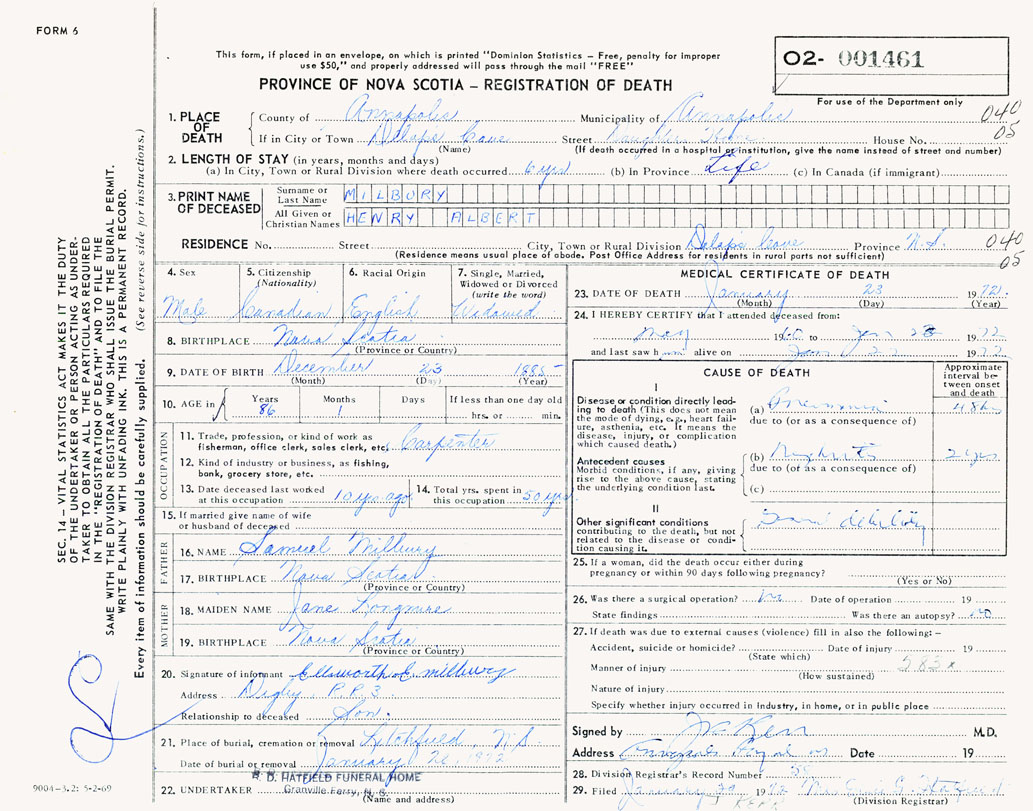 FORM 6
This form, if placed in an envelope, on which is printed "Dominion Statistics – Free, penalty for improper
use $50," and properly addressed will pass through the mail "FREE"
PROVINCE OF NOVA SCOTIA – REGISTRATION OF DEATH
02- 001461
For use of the Department only
1. PLACE OF DEATH
County of Annapolis Municipality of Annapolis 040
If in City or Town Delaps Cove Street Daughters House No. 05
(Name) (If death occurred in a hospital or institution, give the name instead of street and number)
2. LENGTH OF STAY (in years, months and days)
(a) In City, Town or Rural Division where death occurred 6 yrs (b) in Province Life (c) In Canada (if immigrant)
3. PRINT NAME OF DECEASED
Surname or Last Name MILBURY
All Given or Christian Names HENRY ALBERT
RESIDENCE No. Street City, Town or Rural Division Delaps Cove Province N.S. 040
(Residence means usual place of abode. Post Office Address for residents in rural parts not sufficient) 05
4. Sex Male
5. Citizenship (Nationality) Canadian
6. Racial Origin English
7. Single, Married, Widowed or Divorced (write the word) Widowed
8. BIRTHPLACE Nova Scotia
(Province or Country)
9. DATE OF BIRTH December 23 1885
(Month) (Day) (Year)
10. AGE in Years 86 Months 1 Days If less than one day old hrs. or min.
OCCUPATION
11. Trade, profession, or kind of work as fisherman, office clerk, sales clerk, etc. Carpenter
12. Kind of industry or business, as fishing, bank, grocery store, etc.
13. Date deceased last worked at this occupation 10 yrs ago
14. Total yrs. spent in this occupation 50 yrs
15. If married give name of wife or husband of deceased
FATHER
16. NAME Samuel Milbury
17. BIRTHPLACE Nova Scotia
(Province or Country)
MOTHER
18. MAIDEN NAME Jane Longmire
19. BIRTHPLACE Nova Scotia
(Province or Country)
20. Signature of informant Ellsworth E. Milbury
Address Digby R.R. 3
Relationship to deceased Son.
21. Place of burial, cremation or removal Litchfield N.S.
Date of burial or removal January 1972
22. UNDERTAKER
R. D. HATFIELD FUNERAL HOME
Granville Ferry, N. S.
(Name and address)
MEDICAL CERTIFICATE OF DEATH
23. DATE OF DEATH January 23 1972
(Month) (Day) (Year)
24. I HEREBY CERTIFY that I attended deceased from:
May 19 to Jan 1972
and last saw h im alive on Jan 1972
CAUSE OF DEATH
Approximate interval between onset and death
I
Disease or condition directly leading to death (This does not mean the mode of dying, e.g., heart failure, asthenia, etc. It means the disease, injury, or complication which caused death.)
(a) Pneumonia 48 hrs
due to (or as a consequence of)
Antecedent causes
Morbid conditions, if any, giving rise to the above cause, stating the underlying condition last.
(b) Nephritis 2 yrs
due to (or as a consequence of)
(c)
II
Other significant conditions contributing to the death, but not related to the disease or condition causing it.
debility
25. If a woman, did the death occur either during pregnancy or within 90 days following pregnancy?
(Yes or No)
26. Was there a surgical operation? no Date of operation 19
State findings Was there an autopsy? no
27. If death was due to external causes (violence) fill in also the following: –
Accident, suicide or homicide? Date of injury 19
(State which)
Manner of injury 583x
(How sustained)
Nature of injury
Specify whether injury occurred in Industry, in home, or in public place
Signed by Kerr M.D.
Address Annapolis Royal NS Date 19
28. Division Registrar's Record Number
29. Filed January 1972 Hatfield
KERR
(Division Registrar)
SEC. 14 – VITAL STATISTICS ACT MAKES IT THE DUTY
OF THE UNDERTAKER OR PERSON ACTING AS UNDER-
TAKER TO OBTAIN ALL THE PARTICULARS REQUIRED
IN THE "REGISTRATION OF DEATH" AND TO FILE THE
SAME WITH THE DIVISION REGISTRAR WHO SHALL ISSUE THE BURIAL PERMIT.
WRITE PLAINLY WITH UNFADING INK. THIS IS A PERMANENT RECORD.
Every item of information should be carefully supplied. (See reverse side for instructions.)
9004-3.2: 5-2-69